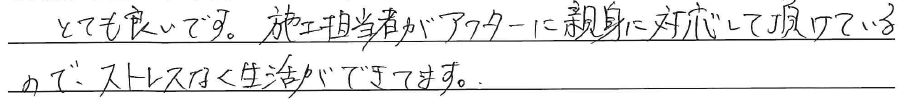 とても良いです。施工担当者がアフターに親身に対応して頂けている
ので、ストレスなく生活ができてます。